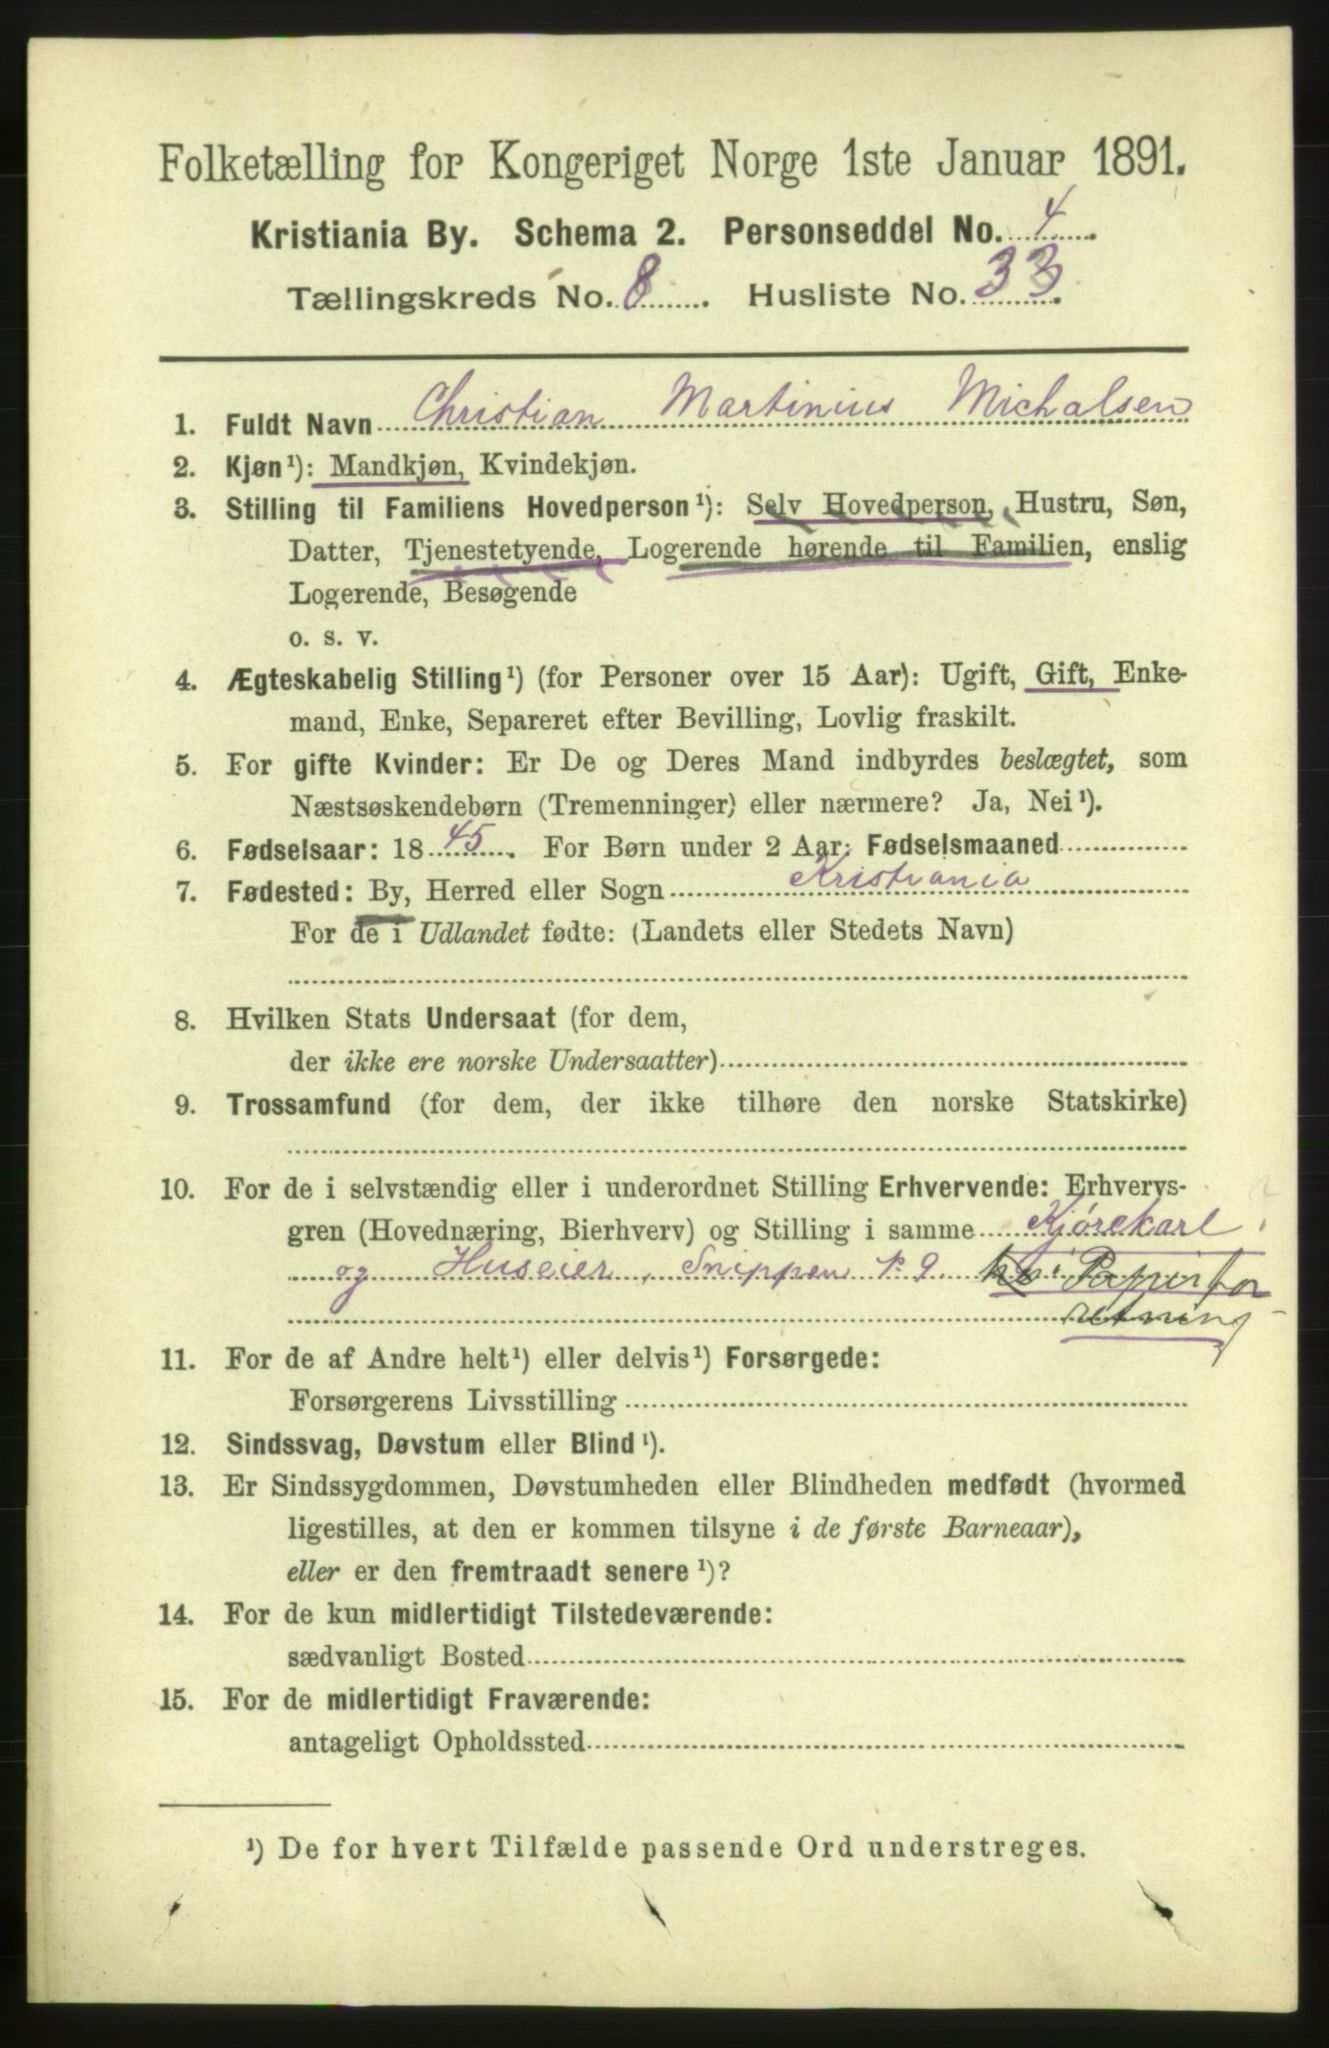 Folketælling for Kongeriget Norge 1ste Januar 1891.
Kristiania By. Schema 2. Personseddel No. 4
Tællingskreds No. 8. Husliste No. 33.
1. Fuldt Navn Christian Martinius Michalsen
2. Kjøn¹): Mandkjøn, Kvindekjøn.
3. Stilling til Familiens Hovedperson¹): Selv Hovedperson, Hustru, Søn,
Datter, Tjenestetyende, Logerende hørende til Familien, enslig
Logerende, Besøgende
o. s. v.
4. Ægteskabelig Stilling¹) (for Personer over 15 Aar): Ugift, Gift, Enke-
mand, Enke, Separeret efter Bevilling, Lovlig fraskilt.
5. For gifte Kvinder: Er De og Deres Mand indbyrdes beslægtet, som
Næstsøskendebørn (Tremenninger) eller nærmere? Ja, Nei¹).
6. Fødselsaar: 1845. For Børn under 2 Aar: Fødselsmaaned
7. Fødested: By, Herred eller Sogn Kristiania
For de i Udlandet fødte: (Landets eller Stedets Navn)
8. Hvilken Stats Undersaat (for dem,
der ikke ere norske Undersaatter)
9. Trossamfund (for dem, der ikke tilhøre den norske Statskirke)
10. For de i selvstændig eller i underordnet Stilling Erhvervende: Erhvervs-
gren (Hovednæring, Bierhverv) og Stilling i samme Kjørekarl
og Huseier, Snippen № 9 i Papirfor
retning
11. For de af Andre helt¹) eller delvis¹) Forsørgede:
Forsørgerens Livsstilling
12. Sindssvag, Døvstum eller Blind¹).
13. Er Sindssygdommen, Døvstumheden eller Blindheden medfødt (hvormed
ligestilles, at den er kommen tilsyne i de første Barneaar),
eller er den fremtraadt senere¹)?
14. For de kun midlertidigt Tilstedeværende:
sædvanligt Bosted
15. For de midlertidigt Fraværende:
antageligt Opholdssted
¹) De for hvert Tilfælde passende Ord understreges.